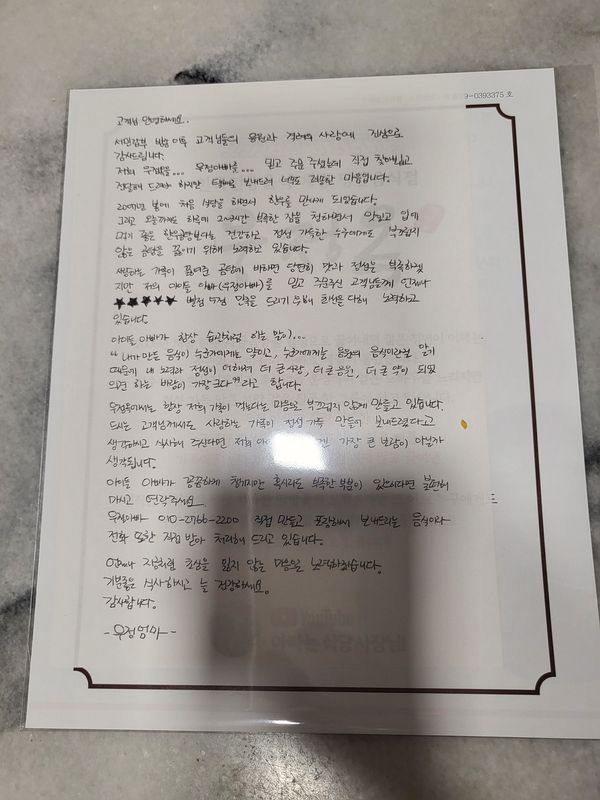 9-0393375 호
고객님 안녕하세요.
서민갑부 방송 이후 고객님들의 응원과 격려와 사랑에 진심으로
감사드립니다.
저희 우정을... 우정아빠를... 믿고 주문 주셨는데 직접 찾아뵙고
전달해 드려야 하지만 택배로 보내드려 너무도 죄송한 마음입니다.
2004년 봄에 처음 식당을 하면서 한우를 만나게 되었습니다.
그리고 오늘까지도 하루에 2~3시간 부족한 잠을 청하면서 맛있고 입에
먹기 좋은 한우곰탕보다는 건강하고 정성 가득한 누구에게도 부끄럽지
않은 곰탕을 끓이기 위해 노력하고 있습니다.
사랑하는 가족이 끓여준 곰탕에 비하면 당연히 맛과 정성은 부족하겠
지만 저희 아이들 아빠(우정아빠)를 믿고 주문주신 고객님들께 언제나
★★★★★ 별점 다섯 만족을 드리기 위해 최선을 다해 노력하고
있습니다.
아이들 아빠가 항상 습관처럼 하는 말이...
"내가 만든 음식이 누군가에게는 약이고, 누군가에게는 응원의 음식이라 믿기
때문에 내 노력과 정성이 더해져 더 큰 사랑, 더 큰 응원, 더 큰 약이 되었
으면 하는 바램이 가장 크다"라고 합니다.
우정루에서는 항상 저희 가족이 먹는다는 마음으로 부끄럽지 않게 만들고 있습니다.
드시는 고객님께서도 사랑하는 가족이 정성 가득 만들어 보내드렸다고
생각하시고 식사해 주신다면 저희 가장 큰 보람이 아닐까
생각됩니다.
아이들 아빠가 꼼꼼하게 챙기지만 혹시라도 부족한 부분이 있으시다면 불편해
마시고 연락주세요.
우정아빠 010-2766-2200 직접 만들고 포장해서 보내드리는 음식이라
전화 또한 직접 받아 처리해 드리고 있습니다.
언제나 지금처럼 초심을 잃지 않는 마음으로 노력하겠습니다.
기분좋은 식사하시고 늘 건강하세요.
감사합니다.
-우정엄마-